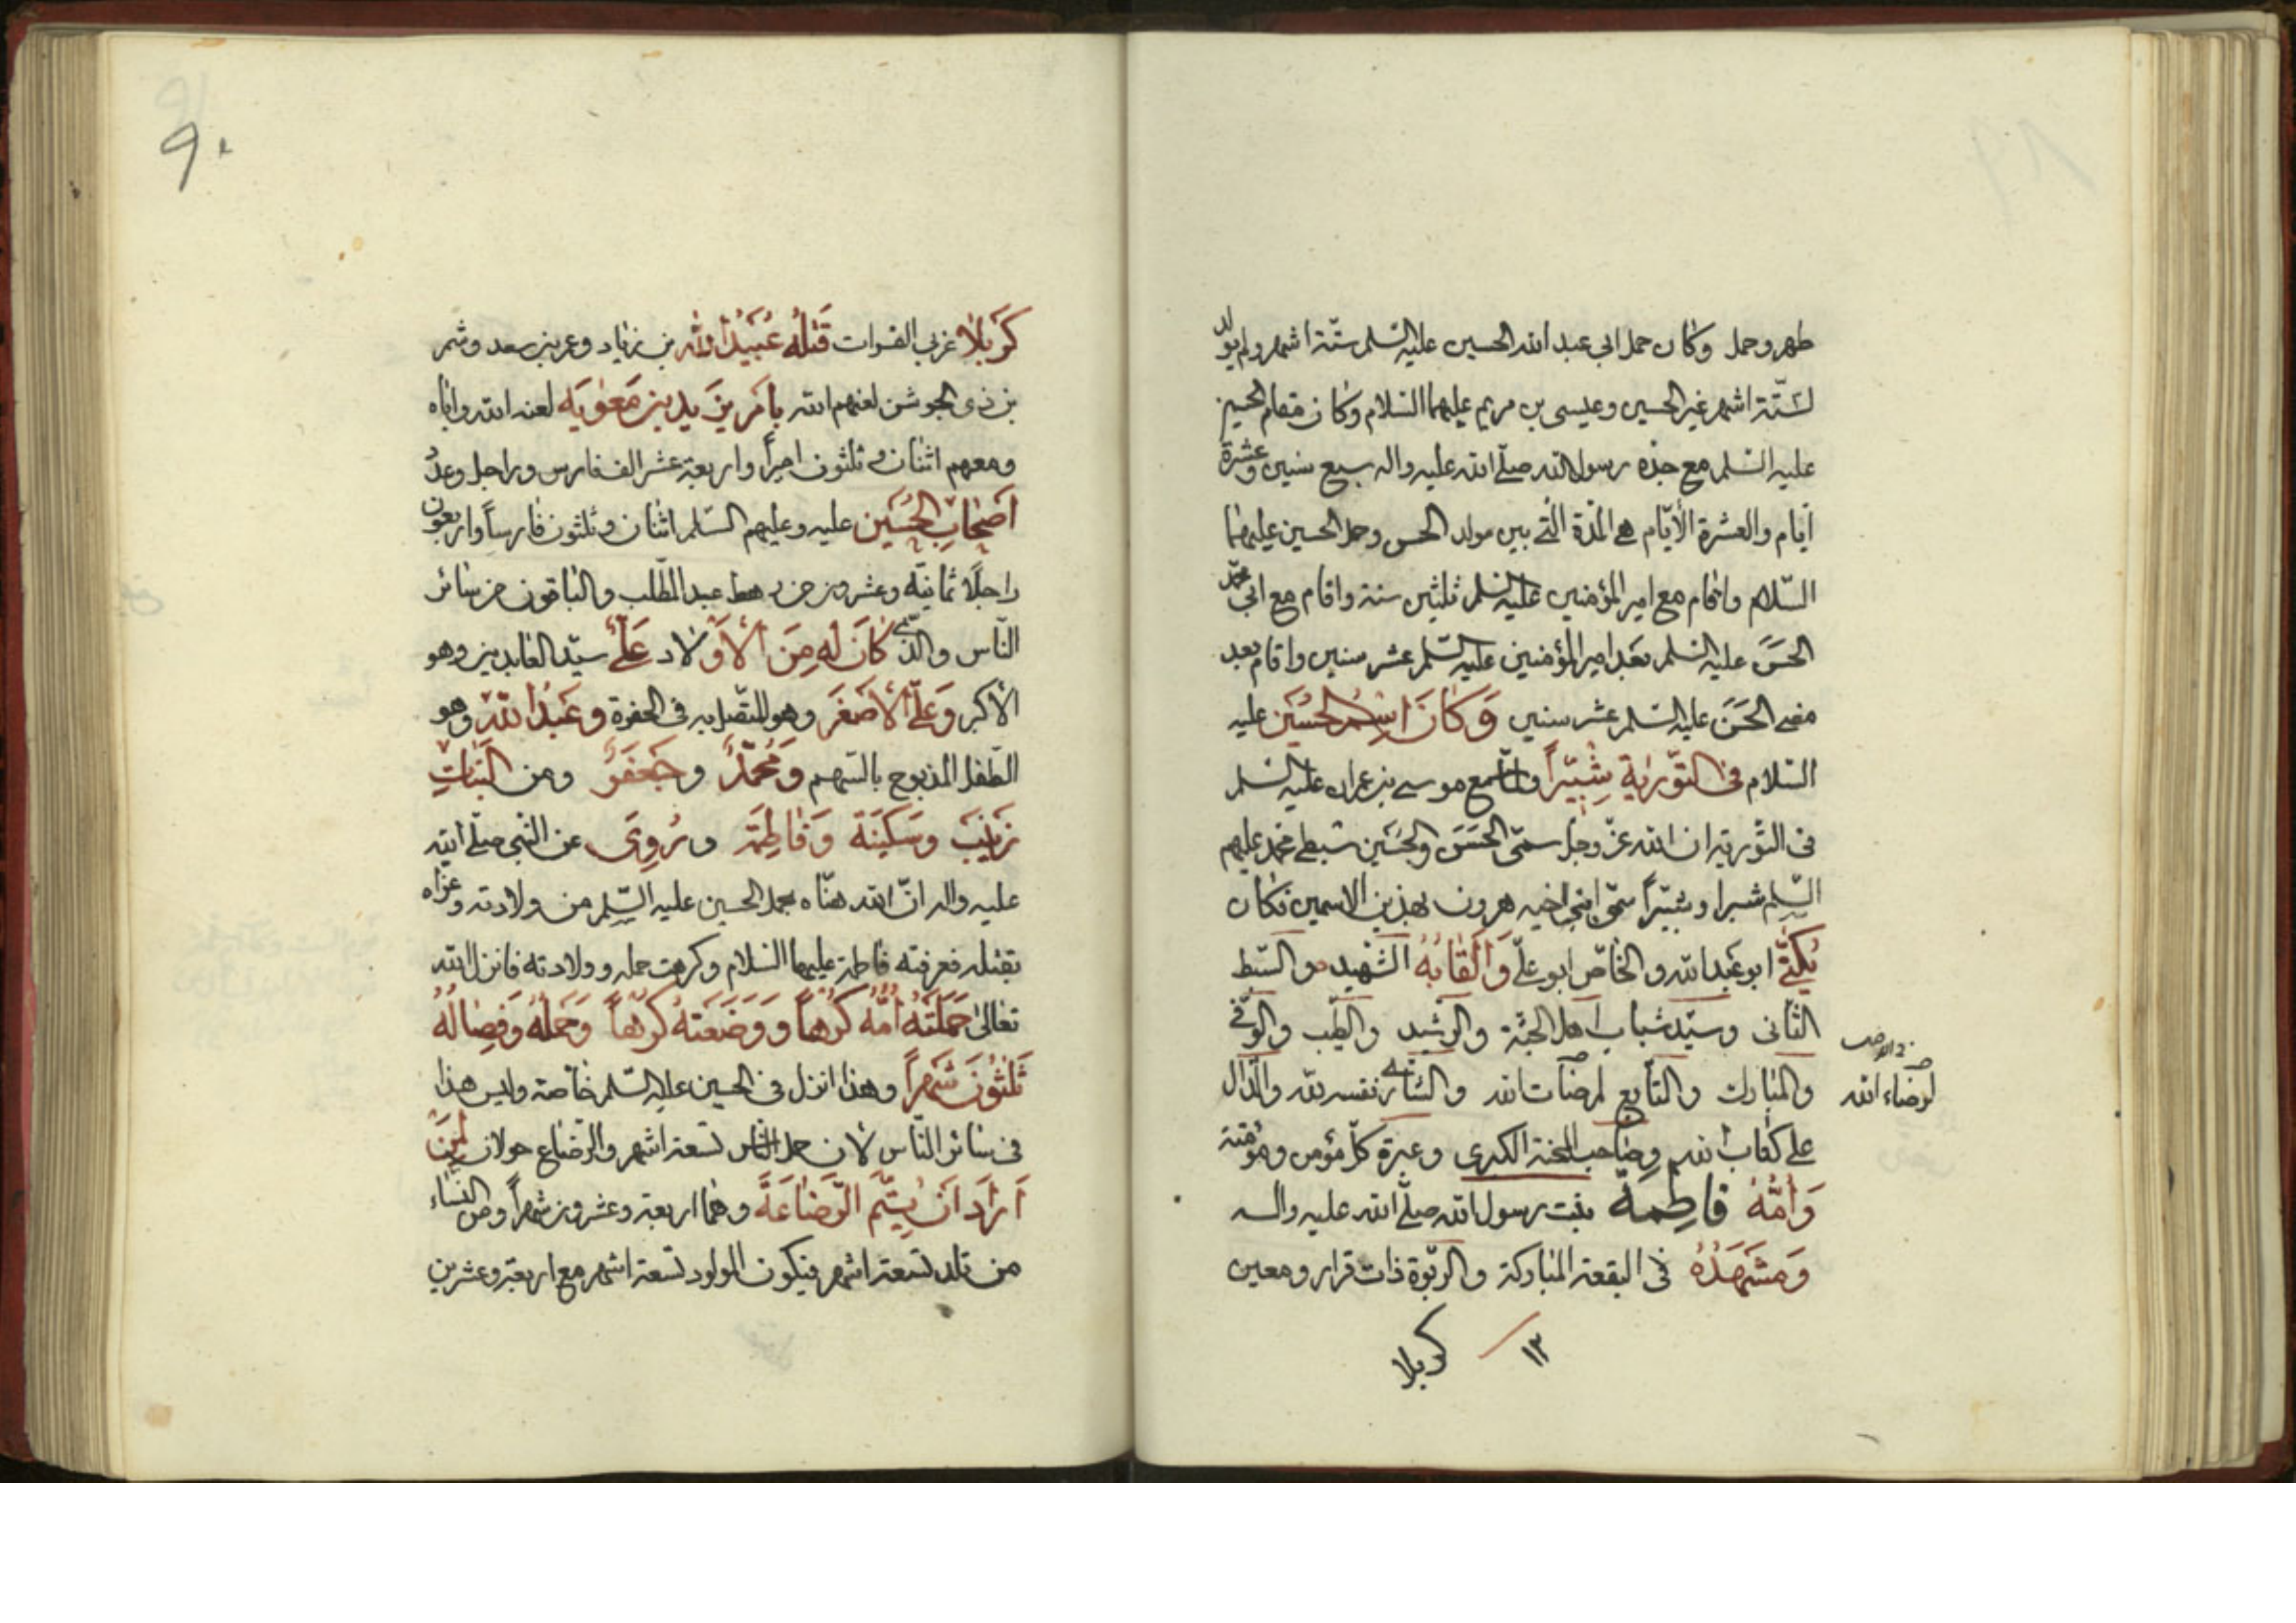 طهر وحمل وكان حمل ابي عبد الله الحسين عليه السلم ستّة اشهر ولم يولد
لستّة اشهر غير الحسين وعيسى بن مريم عليهما السلام وكان مقام الحسين
عليه السلم مع جدّه رسول الله صلّى الله عليه واله سبع سنين وعشرة
ايّام والعشرة الايّام هي المدّة الّتي بين مولد الحسن وحمل الحسين عليهما
السّلام واقام مع امير المؤمنين عليه السلم ثلثين سنة واقام مع ابي محمّد
الحسن عليه السلم بعد امير المؤمنين عليه السّلم عشر سنين واقام بعد
مضى الحسن عليه السلم عشر سنين وَكانَ اسْمُ الحُسَين عليه
السّلام في التّورية شبّيراً مع موسى بن عمران عليه السلم
في التّورية ان الله عزّ وجلّ سمّى الحسن والحسين سبطى محمد عليهم
السّلم شبرا وشبّيراً سمّى ابنى اخيه هرون بهذين الاسمين فكان
يُكَنّى ابو عبد الله والخاصّ ابو علىّ وَاَلْقابُهُ الشّهيد والسّبط
الثّانى وسيّد شباب اهل الجنّة والرشيد والطيّب والوفىّ
والمبارك والتّابع لمرضات الله والشّارى نفسه لله والدّال
لرضاء الله
على كتاب الله وصاحب المحنة الكبرى وعبرة كلّ مؤمن ومؤمنة
وَاُمُّهُ فاطِمة بنت رسول الله صلّى الله عليه واله
وَمَشْهَدُهُ في البقعة المباركة والربوة ذات قرار ومعين
١٣
كربلا
٩٠
كَرْبَلا غربى الفرات قَتَلَهُ عُبَيْدُ اللهِ بن زياد وعمر بن سعد وشمر
بن ذى الجوشن لعنهم الله بِاَمْرِ يَزيدِ بن مَعوية لعنه الله واباه
ومعهم اثنان وثلثون اميراً واربعة عشر الف فارس وراجل وعدد
اَصْحابِ الحُسَين عليه وعليهم السّلم اثنان وثلثون فارساً واربعون
راجلاً ثمانية وعشرون من رهط عبد المطّلب والباقون من سائر
النّاس والّذى كانَ لَهُ مِنَ الاَوْلاد عَلىّ سيّد العابدين وهو
الاكبر وَعَلىّ الاَصْغَر وهو المتّصل به في الحفرة وعَبْدُ اللهِ وهو
الطّفل المذبوح بالسّهم وَمُحَمّدٌ وجَعْفَرٌ ومن البَناتِ
زَيْنَب وسَكينَة وَفاطِمَة ورُوِىَ عن النّبى صلّى الله
عليه واله انّ الله هنّاه بحمل الحسين عليه السّلم من ولادته وعزّاه
بقتله فعرفته فاطمة عليهما السلام وكرهت حمله وولادته فانزل الله
تعالى حَمَلَتْهُ اُمُّهُ كُرْهاً وَوَضَعَتْهُ كُرْهاً وَحَمْلُهُ وَفِصالُهُ
ثَلثُونَ شَهراً وهذا نزل في الحسين عليه السّلم خاصّة وليس هذا
في سائر النّاس لان حمل النّاس تسعة اشهر والرّضاع حولان لِمَنْ
اَرادَ اَنْ يُتِمَّ الرَّضاعَةَ وهما اربعة وعشرون شهراً ومن النساء
من تلد تسعة اشهر فيكون المولود تسعة اشهر مع اربعة وعشرين